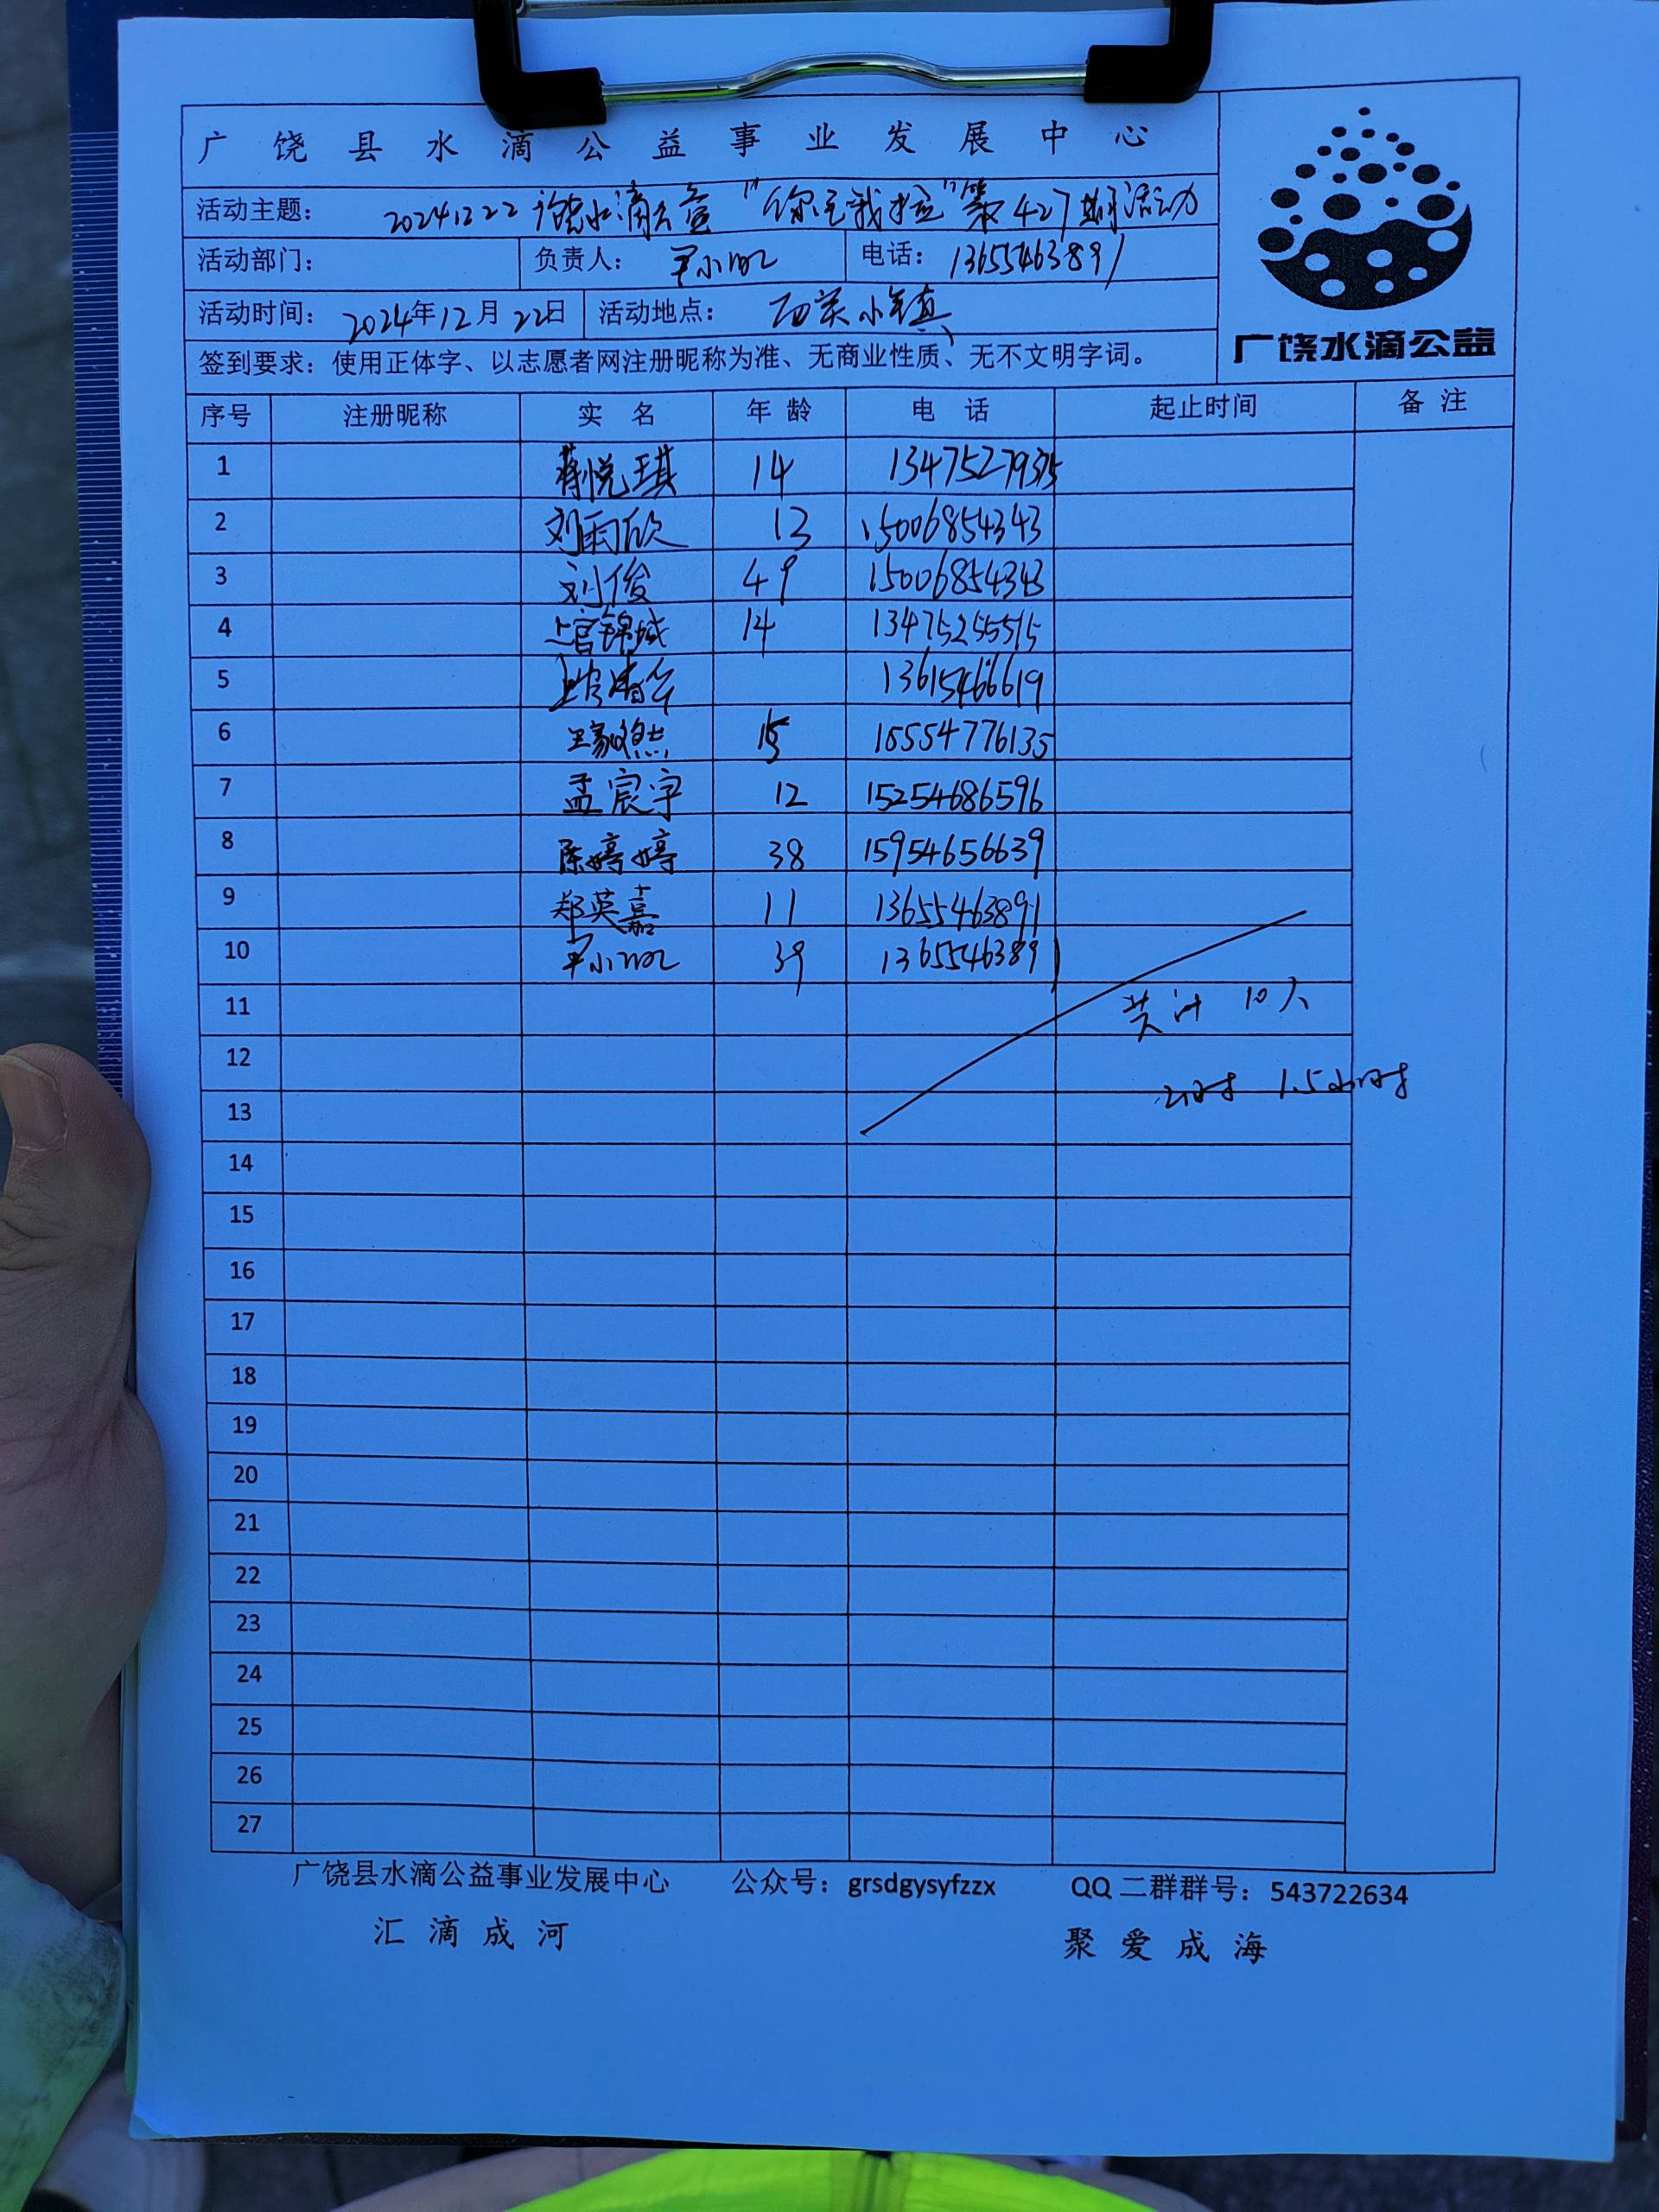 广饶县水滴公益事业发展中心
活动主题： 20241222 广饶水滴公益“你丢我捡”第427期活动
活动部门： 负责人： 电话：13655463891
活动时间：2024年12月22日 活动地点： 小镇
签到要求：使用正体字、以志愿者网注册昵称为准、无商业性质、无不文明字词。
广饶水滴公益
序号 注册昵称 实名 年龄 电话 起止时间 备注
1 蒋悦琪 14 13475279375
2 刘雨欣 13 15006854343
3 刘俊 49 15006854343
4 上官锦城 14 13475255515
5 上官 13615466619
6 王 然 15 15554776135
7 孟宸宇 12 15254686596
8 陈婷婷 38 15954656639
9 郑英嘉 11 13655463891
10 39 13655463891
11 共计 10人
12
13 小时 1.5小时
14
15
16
17
18
19
20
21
22
23
24
25
26
27
广饶县水滴公益事业发展中心 公众号：grsdgysyfzzx QQ二群群号：543722634
汇滴成河 聚爱成海